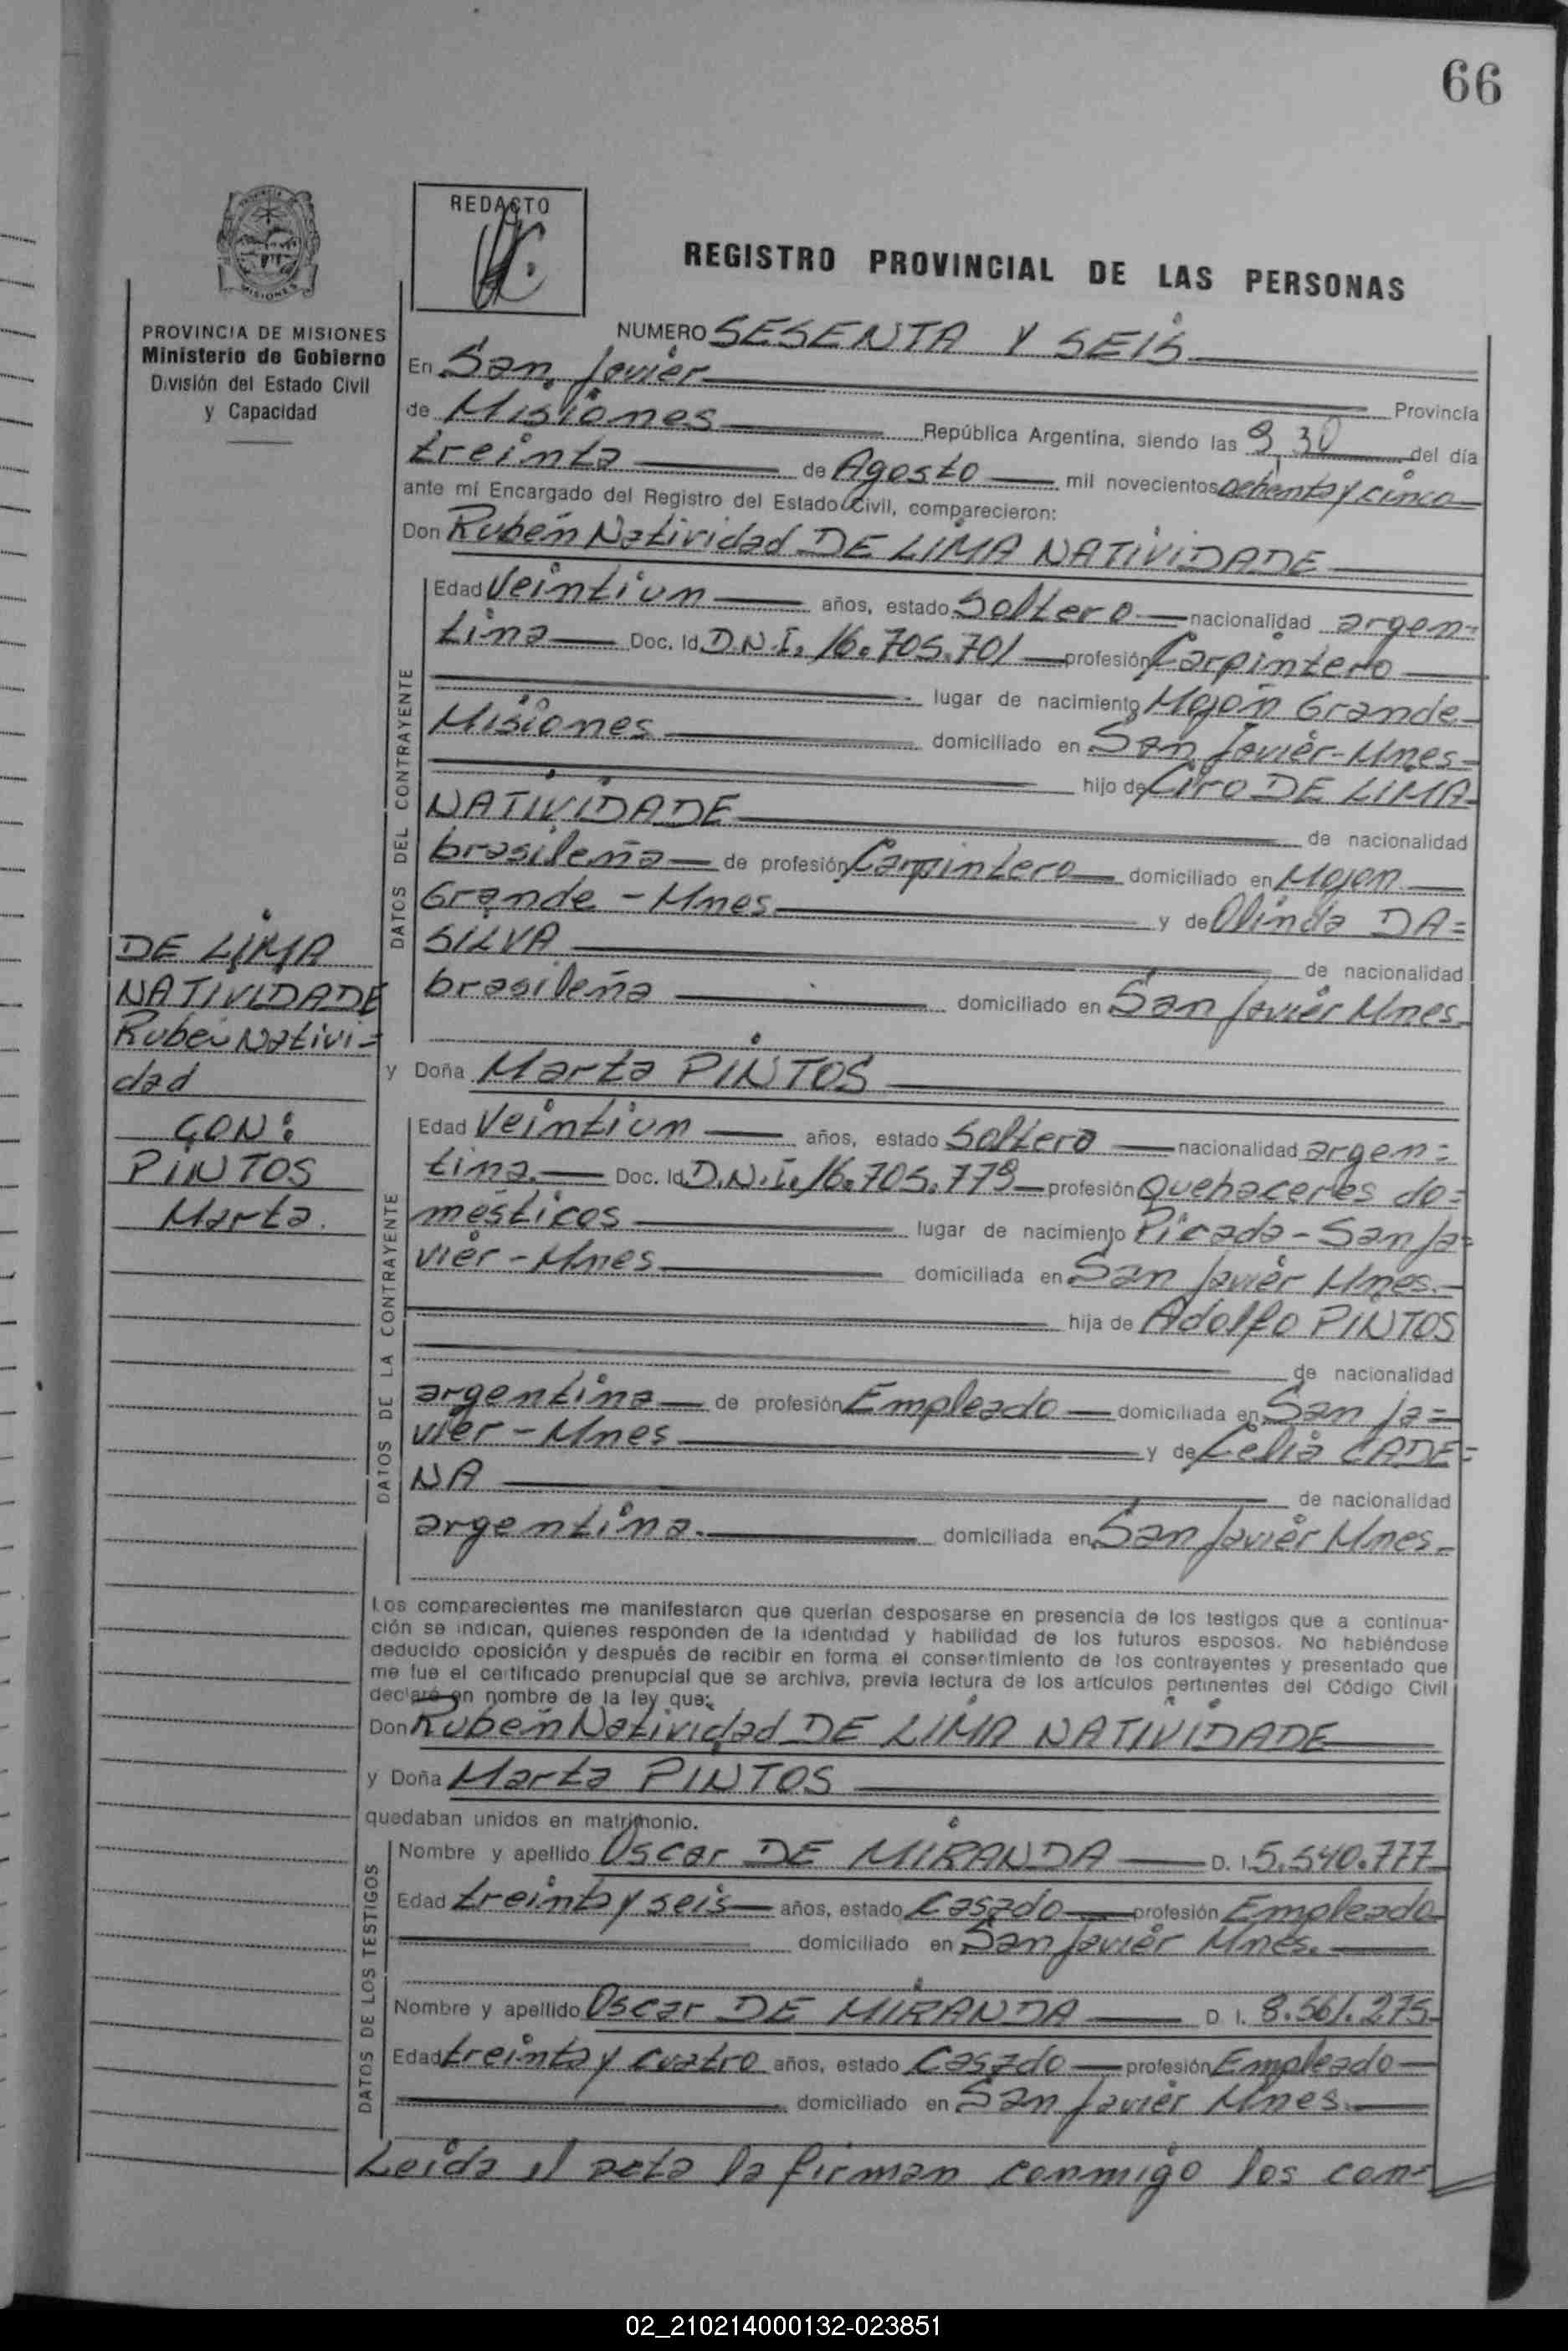 66
REDACTO
REGISTRO PROVINCIAL DE LAS PERSONAS
PROVINCIA DE MISIONES
Ministerio de Gobierno
División del Estado Civil
y Capacidad
NUMERO SESENTA Y SEIS
En San Javier Provincia
de Misiones República Argentina, siendo las 9,30 del día
treinta de Agosto mil novecientos ochenta y cinco
ante mí Encargado del Registro del Estado Civil, comparecieron:
Don Rubén Natividad DE LIMA NATIVIDADE
DATOS DEL CONTRAYENTE
Edad Veintiun años, estado Soltero nacionalidad argen=
tina Doc. Id. D.N.I. 16.705.701 profesión Carpintero
lugar de nacimiento Mojón Grande
Misiones domiciliado en San Javier-Mnes-
hijo de Ciro DE LIMA
NATIVIDADE de nacionalidad
brasileña de profesión Carpintero domiciliado en Mojon
Grande - Mnes y de Olinda DA=
SILVA de nacionalidad
brasileña domiciliado en San Javier Mnes.
DE LIMA
NATIVIDADE
Rubén Nativi=
dad
CON:
PINTOS
Marta.
y Doña Marta PINTOS
DATOS DE LA CONTRAYENTE
Edad Veintiun años, estado Soltera nacionalidad argen=
tina. Doc. Id. D.N.I. 16.705.779 profesión Quehaceres do=
mésticos lugar de nacimiento Picada - San Ja=
vier - Mnes domiciliada en San Javier Mnes.
hija de Adolfo PINTOS
de nacionalidad
argentina de profesión Empleado domiciliada en San Ja=
vier - Mnes y de Celia CADE=
NA de nacionalidad
argentina. domiciliada en San Javier Mnes.
Los comparecientes me manifestaron que querían desposarse en presencia de los testigos que a continua-
ción se indican, quienes responden de la identidad y habilidad de los futuros esposos. No habiéndose
deducido oposición y después de recibir en forma el consentimiento de los contrayentes y presentado que
me fue el certificado prenupcial que se archiva, previa lectura de los artículos pertinentes del Código Civil
declaré en nombre de la ley que:
Don Rubén Natividad DE LIMA NATIVIDADE
y Doña Marta PINTOS
quedaban unidos en matrimonio.
DATOS DE LOS TESTIGOS
Nombre y apellido Oscar DE MIRANDA D. I. 5.540.777
Edad treinta y seis años, estado Casado profesión Empleado
domiciliado en San Javier Mnes.
Nombre y apellido Oscar DE MIRANDA D. I. 8.561.275
Edad treinta y cuatro años, estado Casado profesión Empleado
domiciliado en San Javier Mnes.
Leída el acta la firman conmigo los con=
02_210214000132-023851